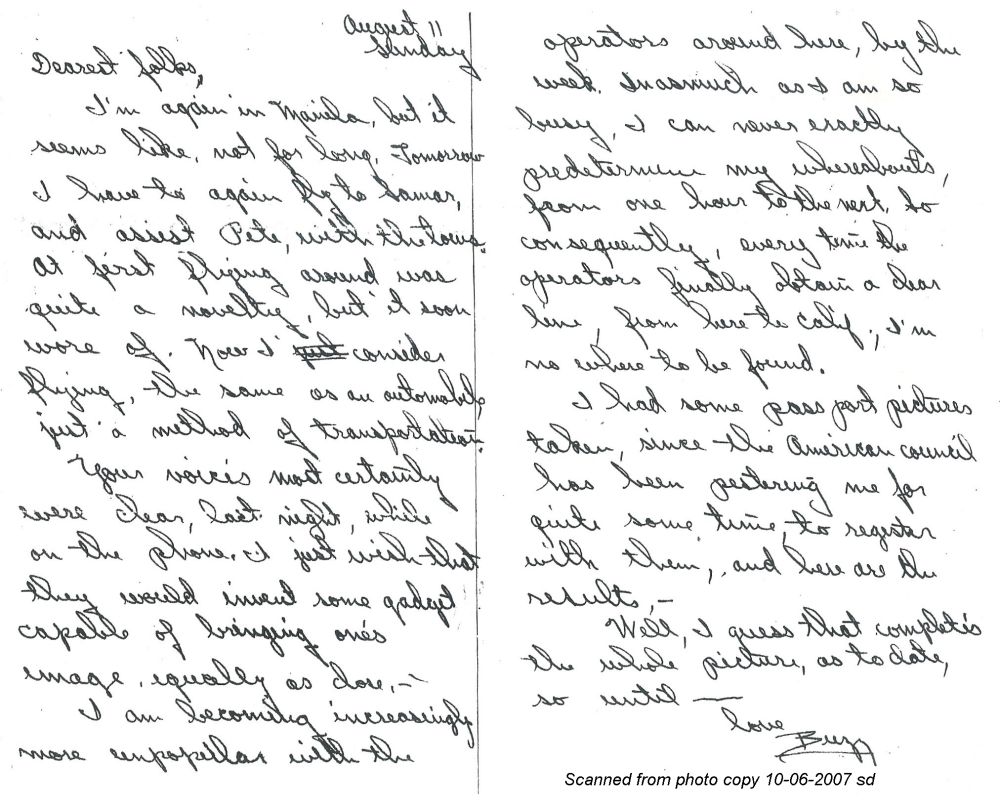 August 11
Sunday
Dearest folks,
I'm again in Manila, but it
seems like, not for long. Tomorrow
I have to again fly to Samar,
and assist Pete, with the tows.
At first flying around was
quite a novelty, but it soon
wore of. Now I just consider
flying, the same as an automobile,
just a method of transportation.
Your voices most certainly
were clear, last night, while
on the phone. I just wish that
they would invent some gadget
capable of bringing one's
image, equally as close, –
I am becoming increasingly
more unpopellar with the
operators around here, by the
week. Inasmuch as I am so
busy, I can never exactly
predetermine my whereabouts,
from one hour to the next. So
consequently, every time the
operators finally obtain a clear
line, from here to Calif., I'm
no where to be found.
I had some pass port pictures
taken, since the American council
has been pestering me for
quite some time, to register
with them, and here are the
results, –
Well, I guess that completes
the whole picture, as to date,
so until —
love
Buzz
Scanned from photo copy 10-06-2007 sd